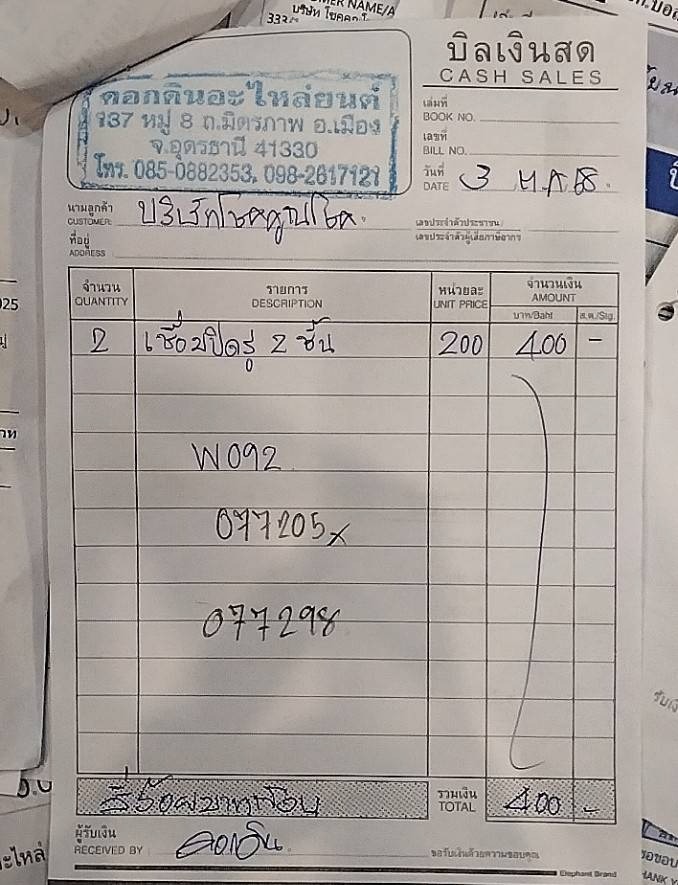 ER NAME/A
บริษัท โชคคูณโ
บิลเงินสด
CASH SALES
ดอกดินอะไหล่ยนต์
137 หมู่ 8 ถ.มิตรภาพ อ.เมือง
จ.อุดรธานี 41330
โทร. 085-0882353, 098-2617121
เล่มที่
BOOK NO.
เลขที่
BILL NO.
วันที่
DATE 3
นามลูกค้า
CUSTOMER บริษัทโชคคูณโชค
ที่อยู่
ADDRESS
เลขประจำตัวประชาชน
เลขประจำตัวผู้เสียภาษีอากร
จำนวน รายการ หน่วยละ จำนวนเงิน
QUANTITY DESCRIPTION UNIT PRICE AMOUNT
บาท/Baht ส.ต./Stg.
2 เชื่อมปิดรู 2 ชิ้น 200 400 -
W092
077205x
077298
สี่ร้อยบาทถ้วน รวมเงิน 400 -
TOTAL
ผู้รับเงิน
RECEIVED BY ดอกดิน
ขอรับเงินด้วยความขอบคุณ
Elephant Brand
025
ะไหล่